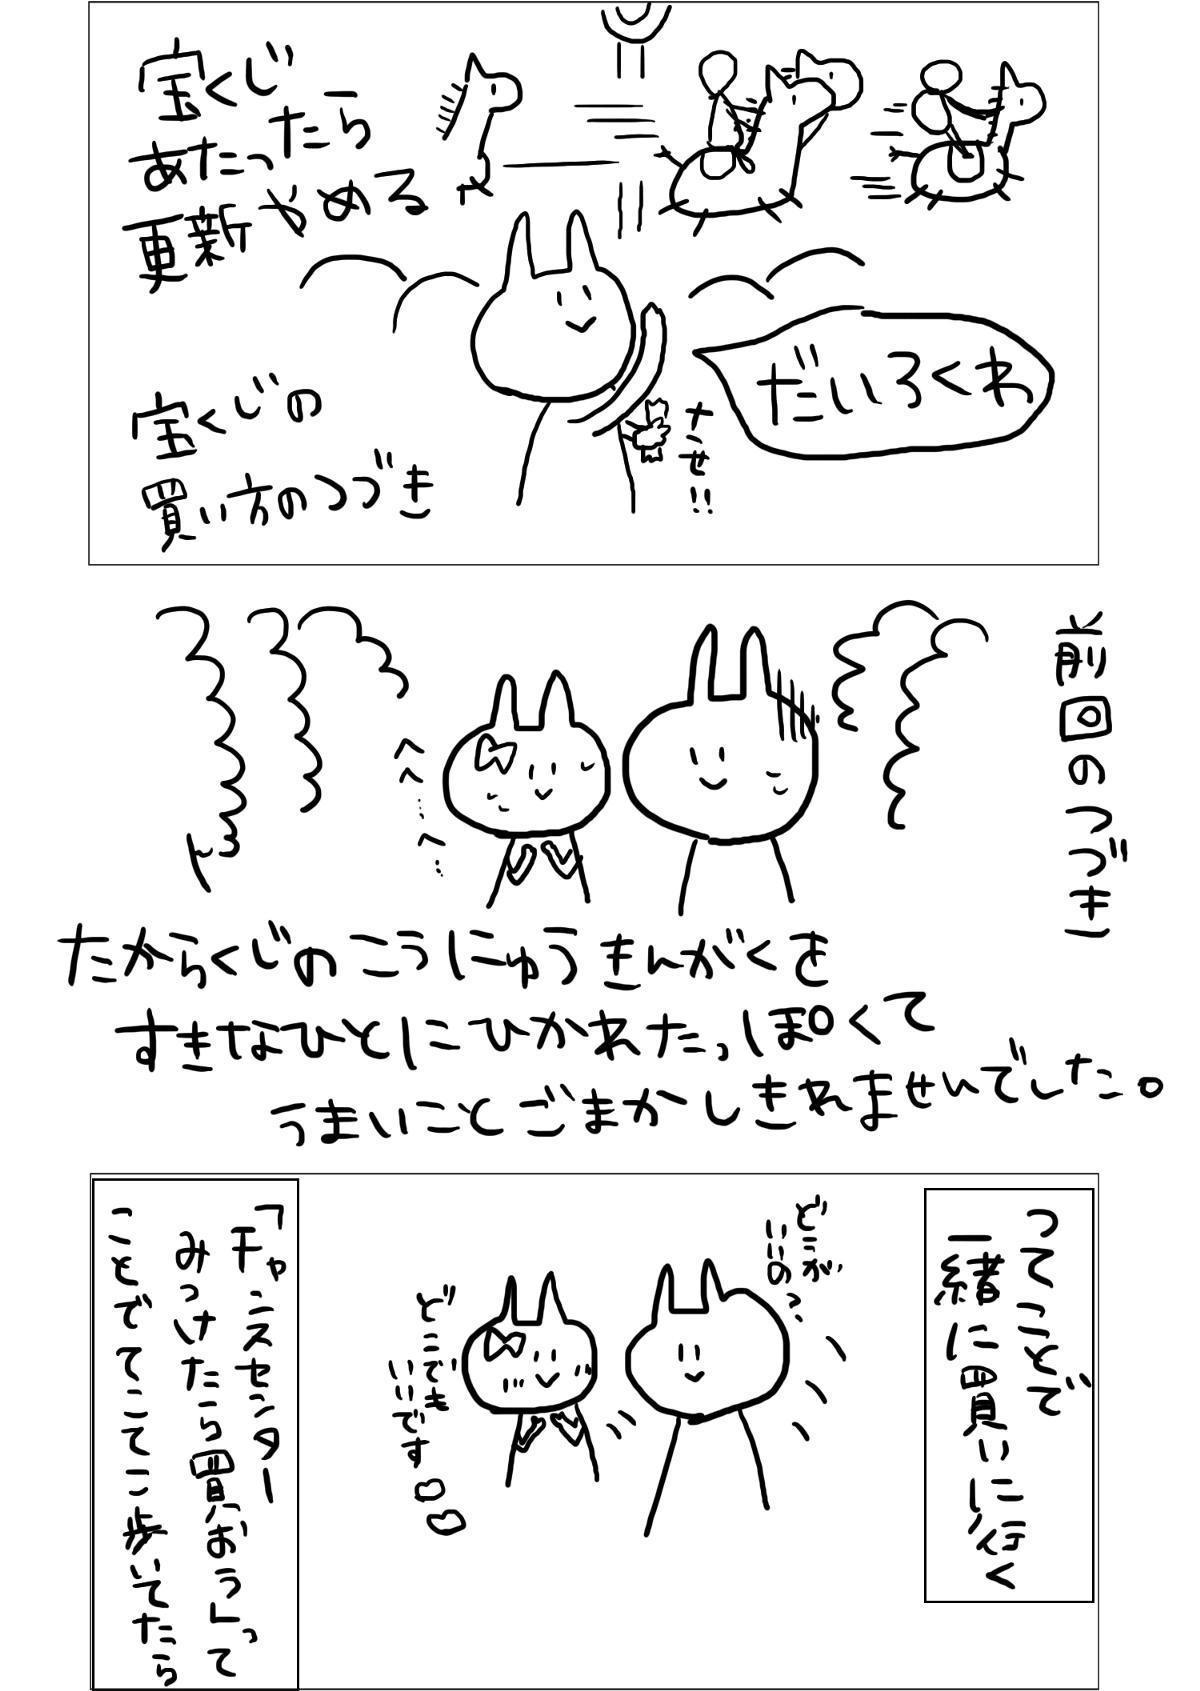 宝くじ
あたったら
更新やめる
だいろくわ
なぜ!!
宝くじの
買い方のつづき
前回のつづき
へへ……へ…
たからくじのこうにゅうきんがくを
すきなひとにひかれたっぽくて
うまいことごまかしきれませんでした。
ってことで
一緒に買いに行く
どこが
いいの?
どこでも
いいです
「チャンスセンター
みつけたら買おう」って
ことでてこてこ歩いてたら